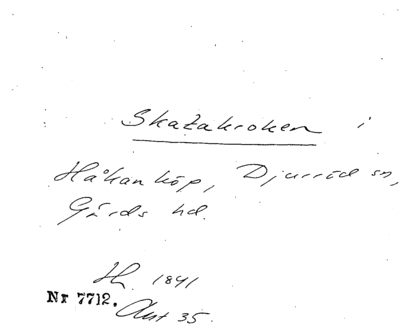 Skatakroken i
Håkanköp, Djurröd sn,
Gärds hd.
H. 1841
Nr 7712.
Akt 35.